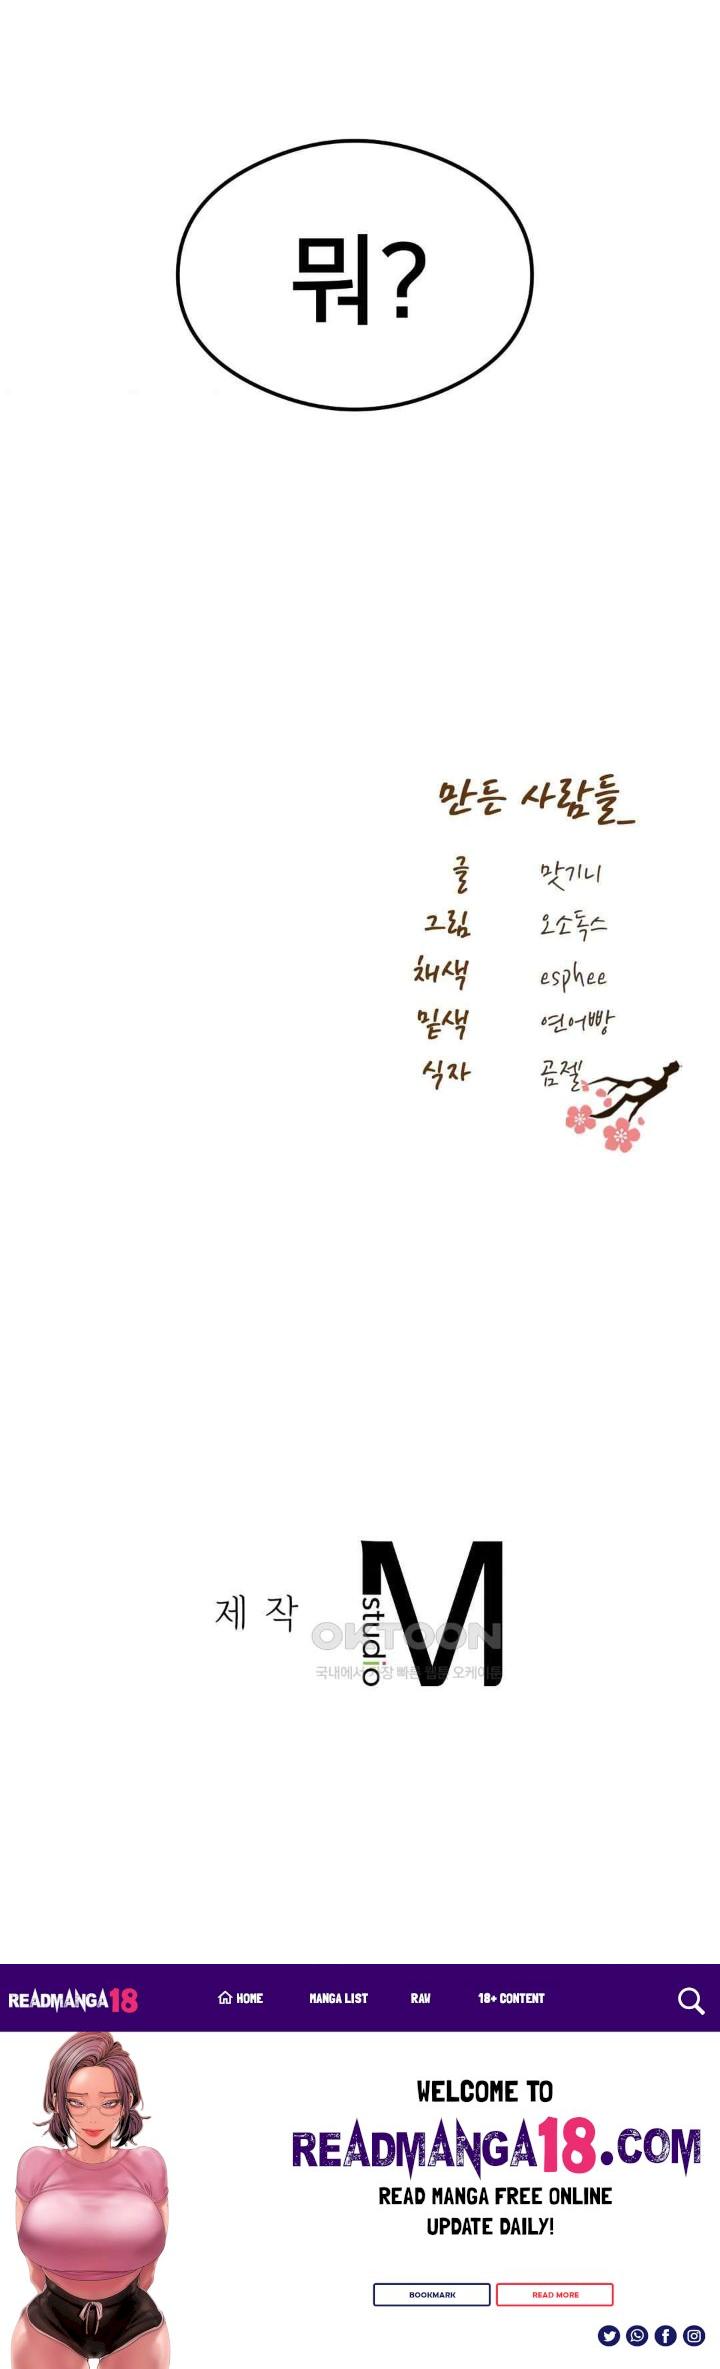 뭐?
만든 사람들_
글 맛기니
그림 오소독스
채색 esphee
밑색 연어빵
식자 곰젤
제작 studio M
OKTOON
국내에서 가장 빠른 웹툰 오케이툰
READMANGA18 HOME MANGA LIST RAW 18+ CONTENT
WELCOME TO
READMANGA18.COM
READ MANGA FREE ONLINE
UPDATE DAILY!
BOOKMARK READ MORE